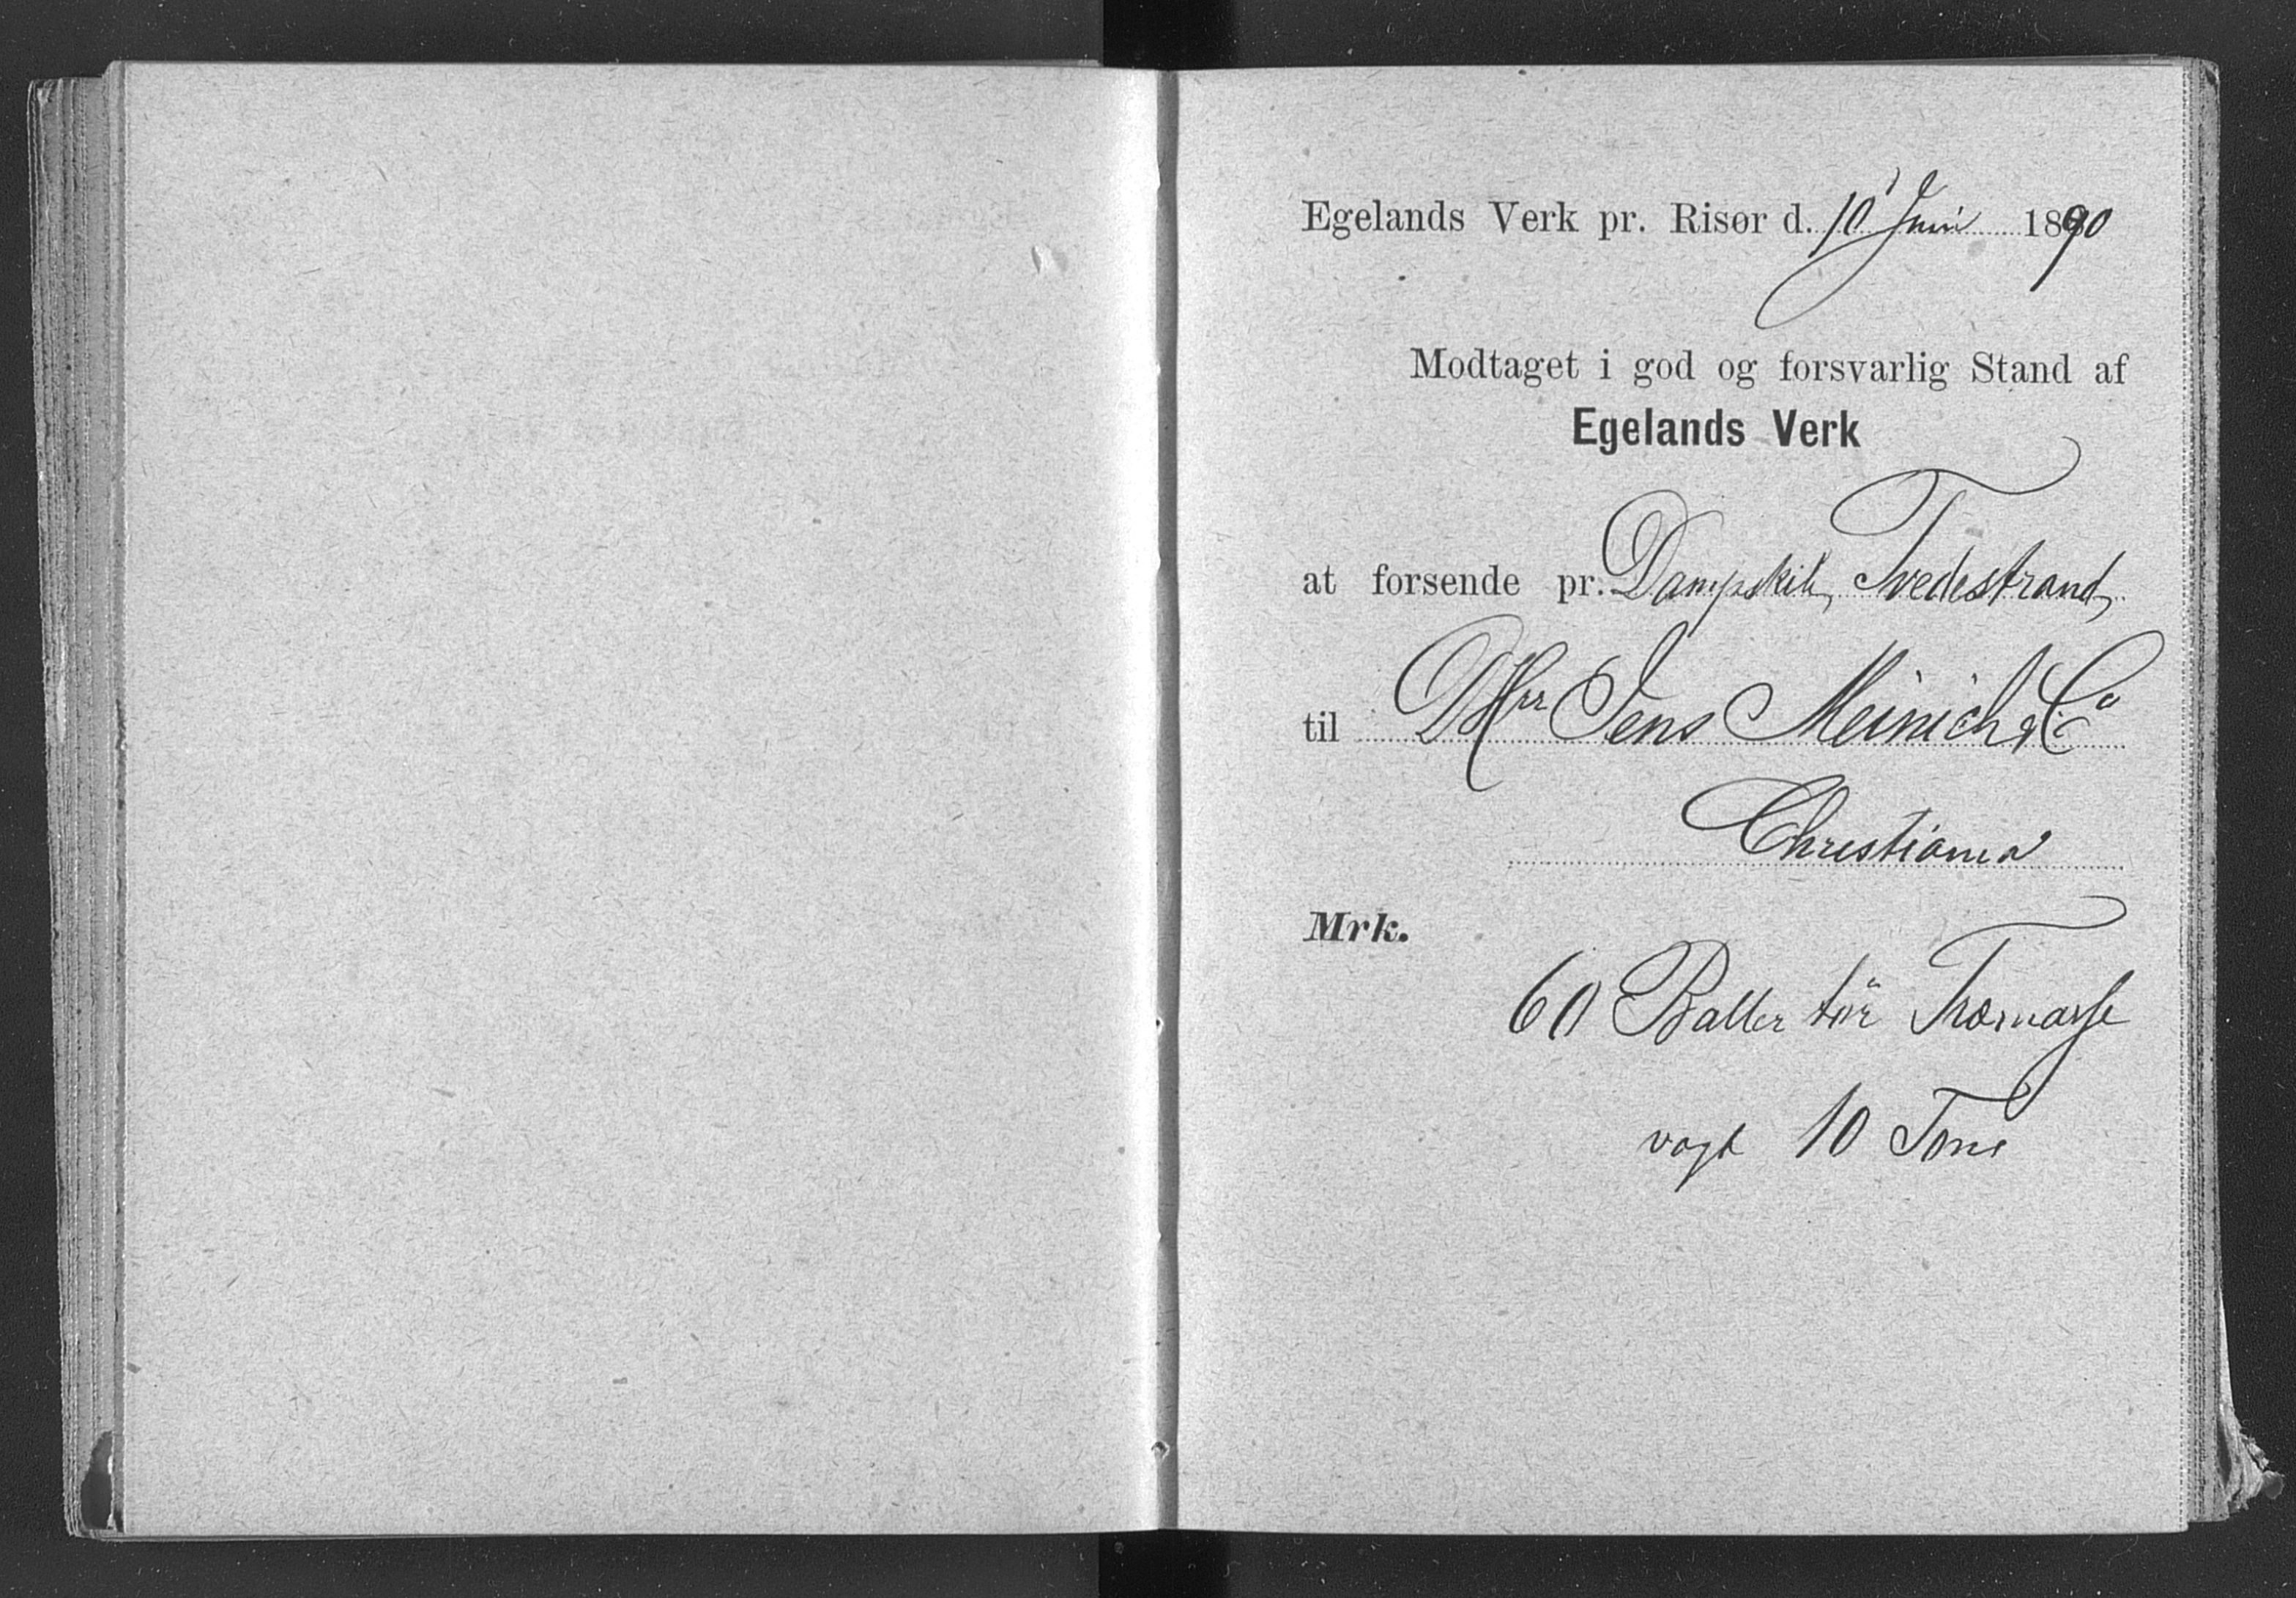 Egelands Verk pr. Risør d. 10 Juni 1890
Modtaget i god og forsvarlig Stand af
Egelands Verk
at forsende pr. Dampskib, Tvedestrand,
til DHrr Jens Meinich & Co
Christiania
Mrk.
60 Baller tör Træmasse
vægt 10 Tons